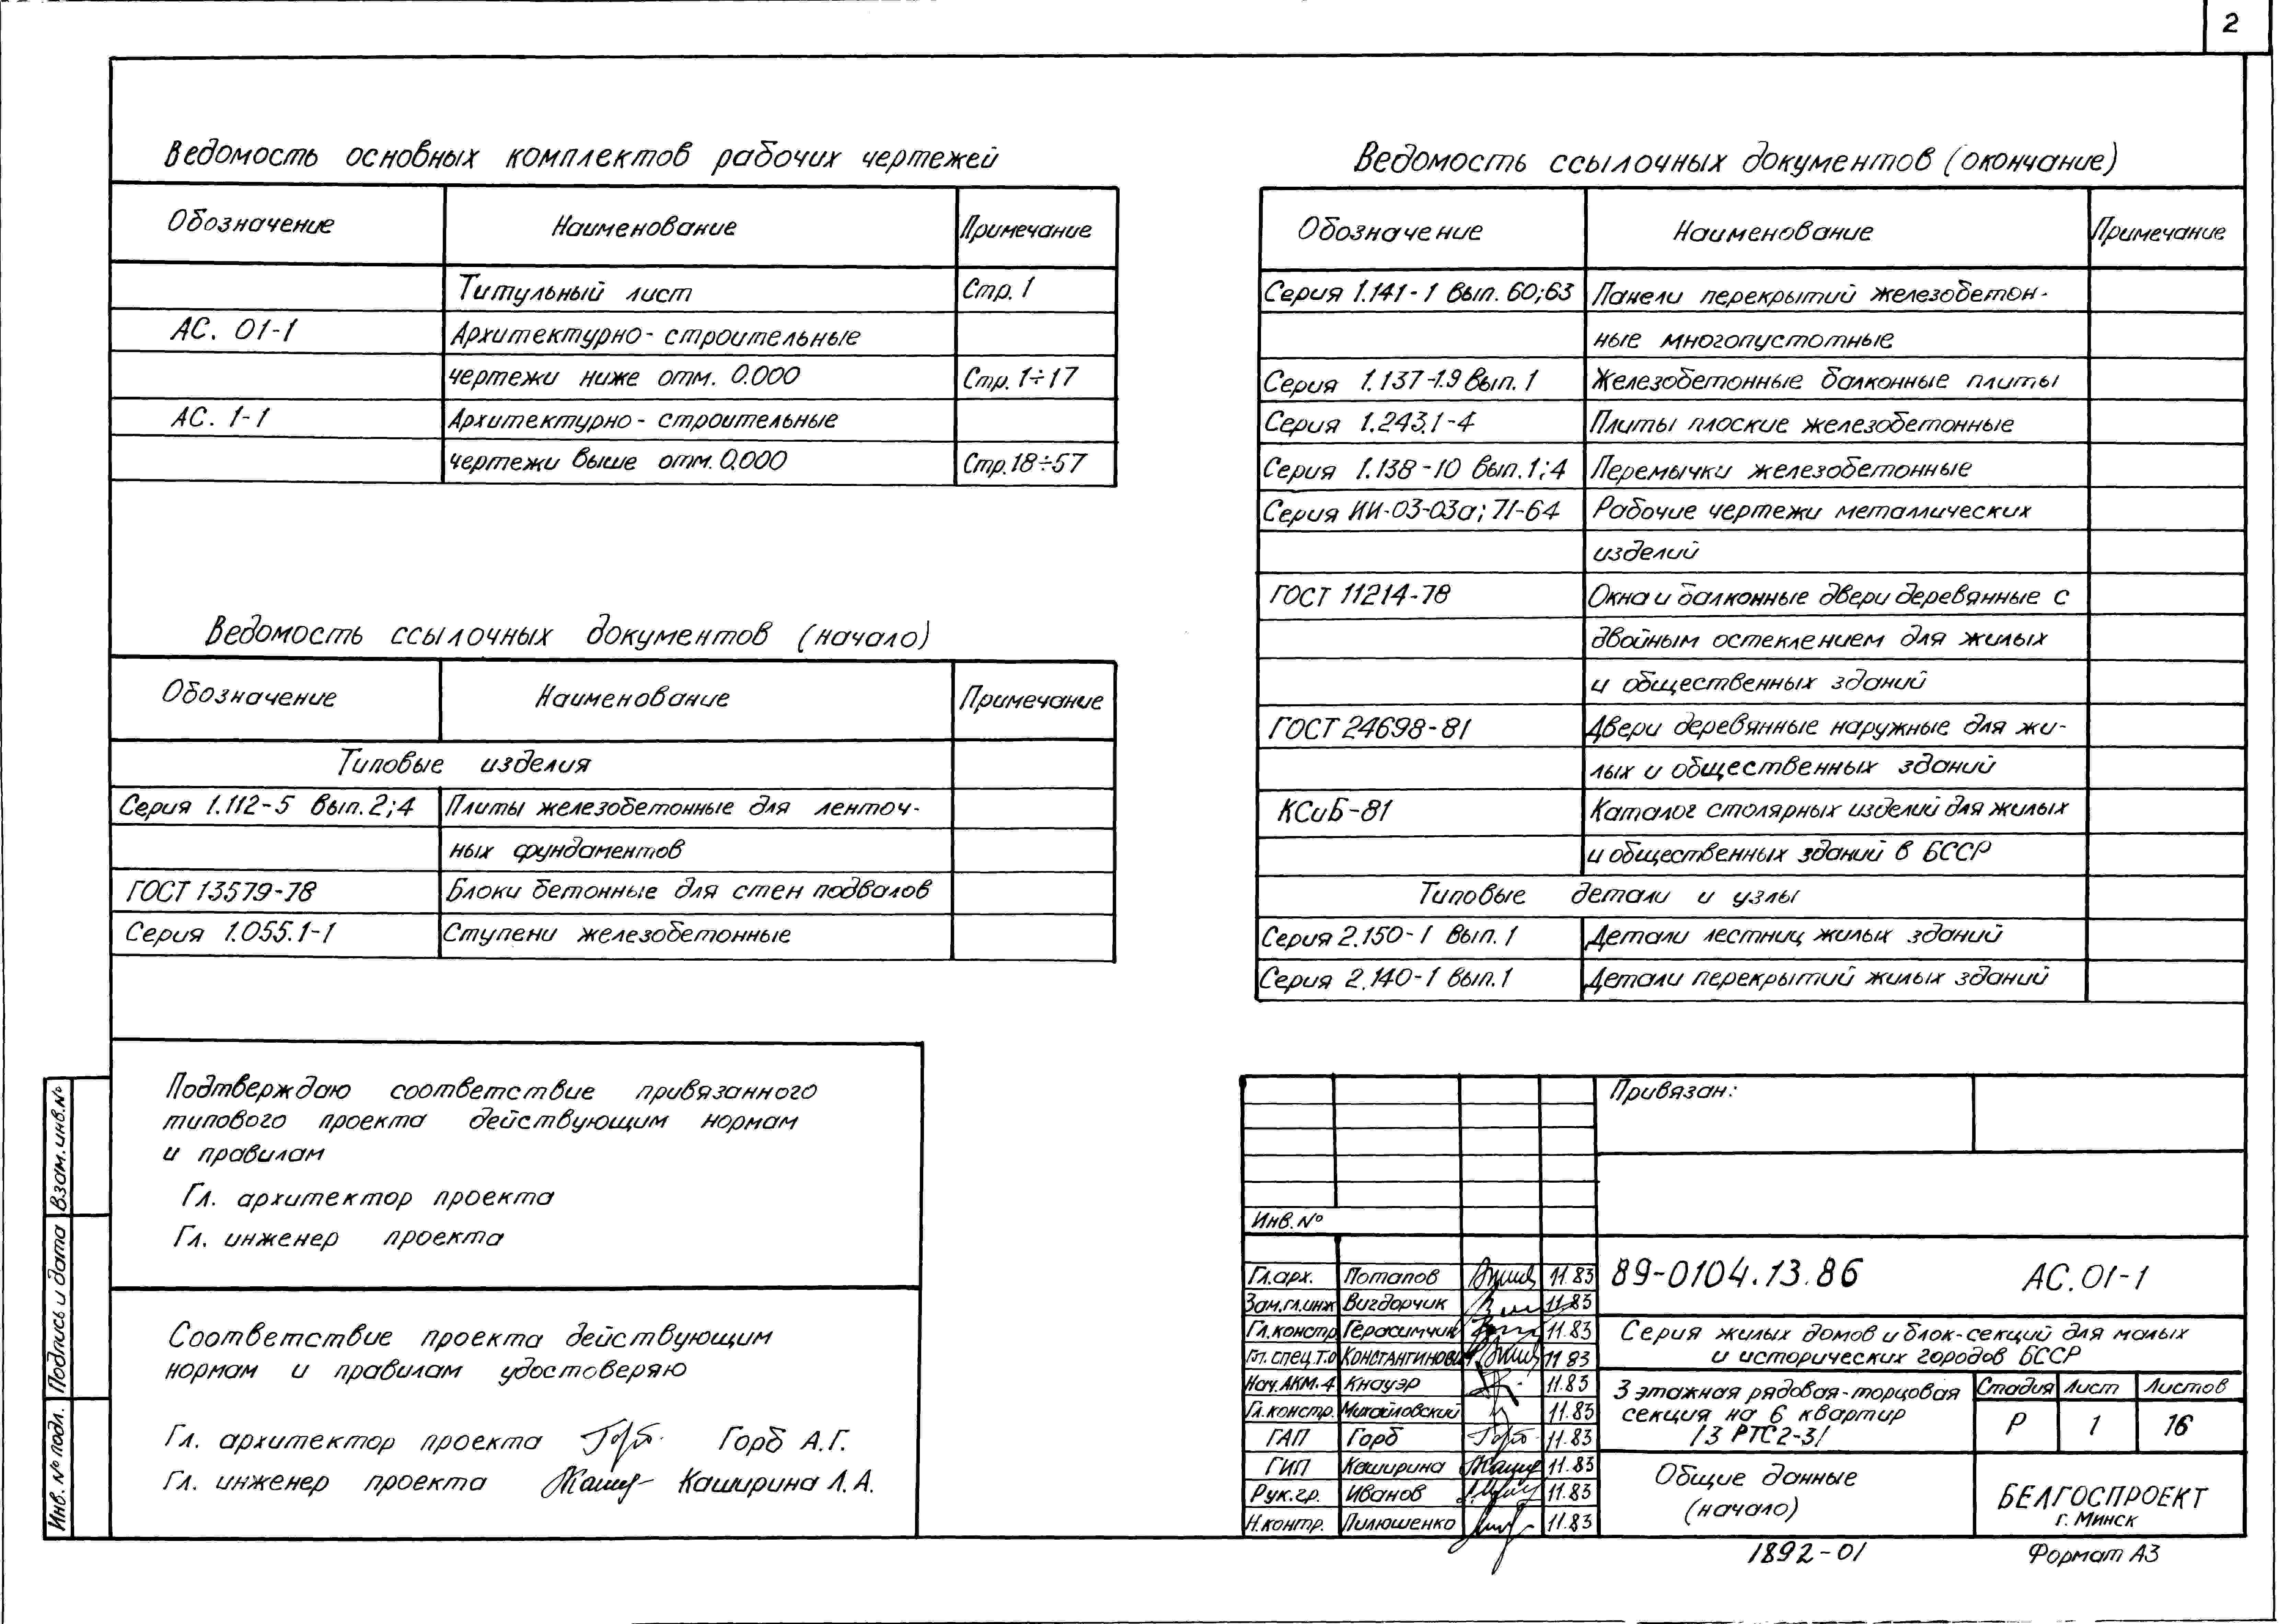 2
Ведомость основных комплектов рабочих чертежей
Обозначение Наименование Примечание
Титульный лист Стр. 1
АС. 01-1 Архитектурно- строительные
чертежи ниже отм. 0.000 Стр. 1÷17
АС. 1-1 Архитектурно- строительные
чертежи выше отм. 0.000 Стр. 18÷57
Ведомость ссылочных документов (начало)
Обозначение Наименование Примечание
Типовые изделия
Серия 1.112-5 вып. 2;4 Плиты железобетонные для ленточ-
ных фундаментов
ГОСТ 13579-78 Блоки бетонные для стен подвалов
Серия 1.055.1-1 Ступени железобетонные
Ведомость ссылочных документов (окончание)
Обозначение Наименование Примечание
Серия 1.141-1 вып. 60;63 Панели перекрытий железобетон-
ные многопустотные
Серия 1.137-1.9 вып. 1 Железобетонные балконные плиты
Серия 1.243.1-4 Плиты плоские железобетонные
Серия 1.138-10 вып. 1;4 Перемычки железобетонные
Серия ИИ-03-03а; 71-64 Рабочие чертежи металлических
изделий
ГОСТ 11214-78 Окна и балконные двери деревянные с
двойным остеклением для жилых
и общественных зданий
ГОСТ 24698-81 Двери деревянные наружные для жи-
лых и общественных зданий
КСиБ-81 Каталог столярных изделий для жилых
и общественных зданий в БССР
Типовые детали и узлы
Серия 2.150-1 вып. 1 Детали лестниц жилых зданий
Серия 2.140-1 вып. 1 Детали перекрытий жилых зданий
Подтверждаю соответствие привязанного
типового проекта действующим нормам
и правилам
Гл. архитектор проекта
Гл. инженер проекта
Соответствие проекта действующим
нормам и правилам удостоверяю
Гл. архитектор проекта Горб А.Г.
Гл. инженер проекта Каширина Л.А.
Взам. инв. №
Подпись и дата
Инв. № подл.
Привязан:
Инв. №
Гл. арх. Потапов 11.83
Зам. гл. инж Вигдорчик 11.83
Гл. констр Герасимчик 11.83
Гл. спец. Т.О 11 83
Нач. АКМ-4 Кнауэр 11.83
Гл. констр. Михайловский 11.83
ГАП Горб 11.83
ГИП Каширина 11.83
Рук. гр. Иванов 11.83
Н. контр. Пилюшенко 11.83
89-0104.13.86 АС. 01-1
Серия жилых домов и блок-секций для малых
и исторических городов БССР
3 этажная рядовая-торцовая
секция на 6 квартир
/3 РТС 2-3/
Стадия Лист Листов
Р 1 16
Общие данные
(начало)
БЕЛГОСПРОЕКТ
г. Минск
1892-01 Формат А3